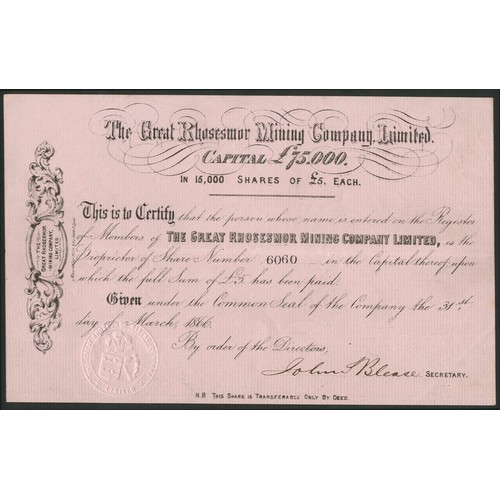 The Great Rhosesmor Mining Company, Limited.
CAPITAL £75,000.
IN 15,000 SHARES OF £5. EACH.
This is to Certify that the person whose name is entered on the Register
of Members of THE GREAT RHOSESMOR MINING COMPANY LIMITED, is the
Proprietor of Share Number 6060 in the Capital thereof upon
which the full Sum of £5 has been paid.
Given under the Common Seal of the Company the 31st
day of March, 1866.
By order of the Directors,
John S Blease SECRETARY.
N.B THIS SHARE IS TRANSFERABLE ONLY BY DEED.
THE
GREAT RHOSESMOR
MINING COMPANY,
LIMITED